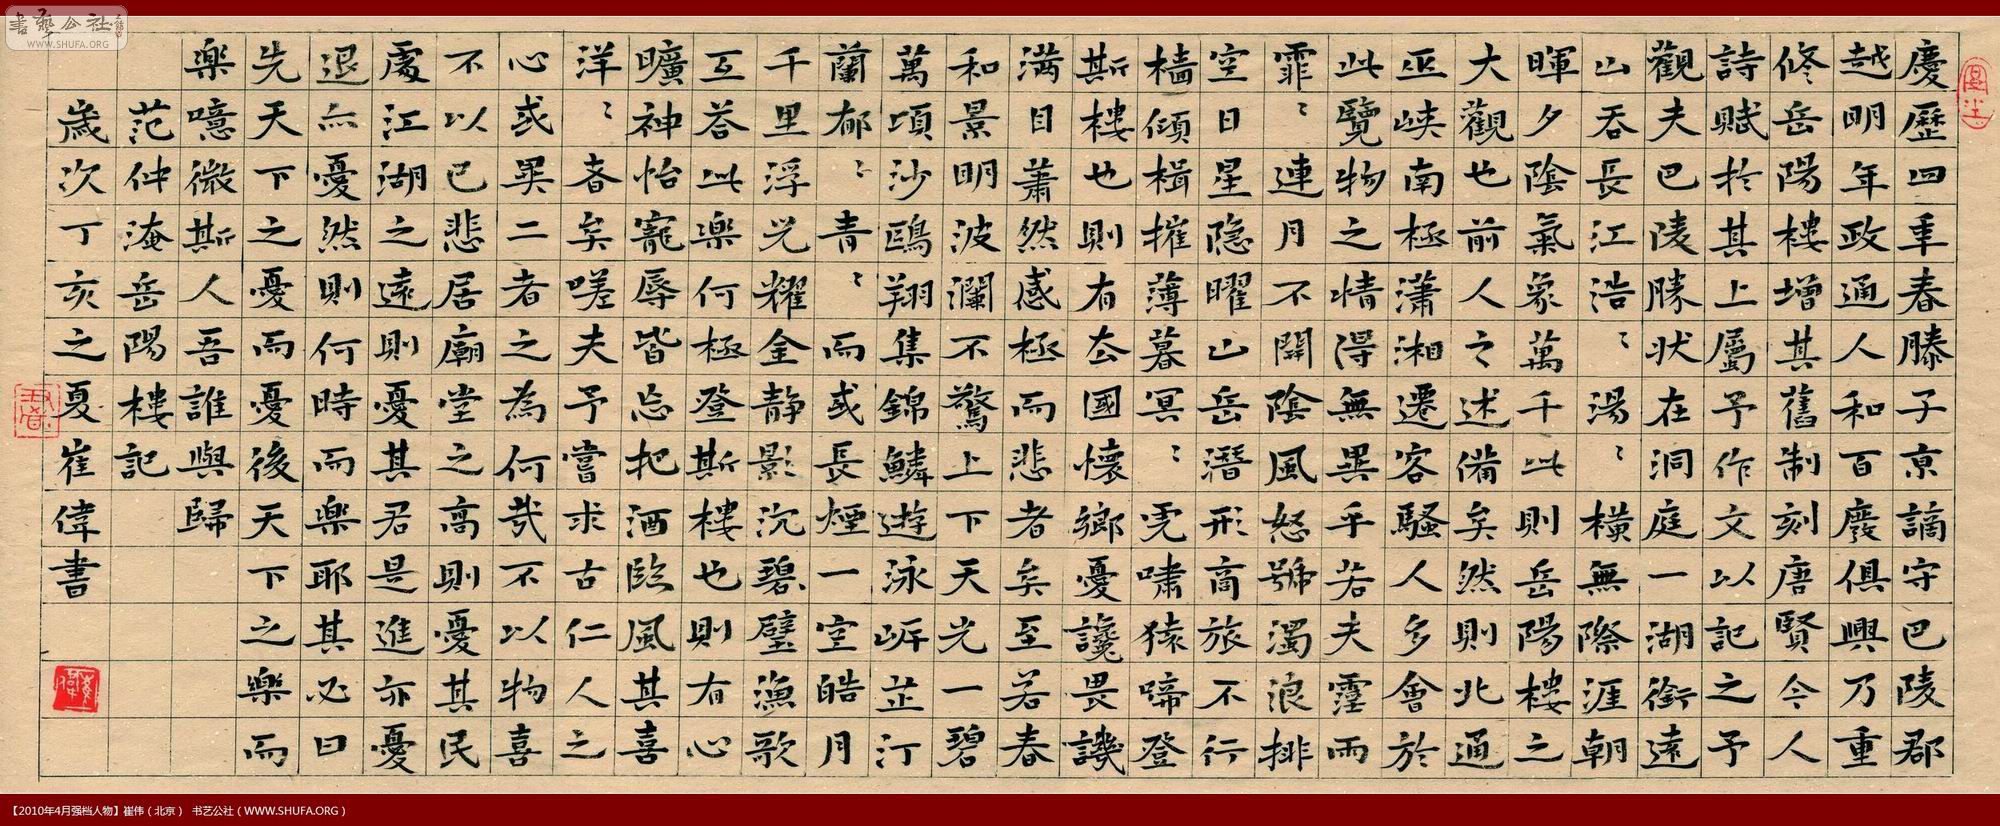 慶歷四年春滕子京謫守巴陵郡
越明年政通人和百廢俱興乃重
修岳陽樓增其舊制刻唐賢今人
詩賦於其上屬予作文以記之予
觀夫巴陵勝狀在洞庭一湖銜遠
山吞長江浩〻湯〻橫無際涯朝
暉夕陰氣象萬千此則岳陽樓之
大觀也前人之述備矣然則北通
巫峽南極瀟湘遷客騷人多會於
此覽物之情得無異乎若夫霪雨
霏〻連月不開陰風怒號濁浪排
空日星隐曜山岳潛形商旅不行
檣傾楫摧薄暮冥〻虎嘯猿啼登
斯樓也則有去國懷鄉憂讒畏譏
滿目蕭然感極而悲者矣至若春
和景明波瀾不驚上下天光一碧
萬頃沙鷗翔集錦鱗遊泳岸芷汀
蘭郁〻青〻而或長煙一空皓月
千里浮光耀金静影沉碧璧漁歌
互答此樂何極登斯樓也則有心
曠神怡寵辱皆忘把酒臨風其喜
洋〻者矣嗟夫予嘗求古仁人之
心或異二者之為何哉不以物喜
不以己悲居廟堂之高則憂其民
處江湖之遠則憂其君是進亦憂
退亦憂然則何時而樂耶其必曰
先天下之憂而憂後天下之樂而
樂噫微斯人吾誰與歸
范仲淹岳陽樓記
歲次丁亥之夏崔偉書
書艺公社
WWW.SHUFA.ORG
【2010年4月强档人物】崔伟（北京） 书艺公社（WWW.SHUFA.ORG）